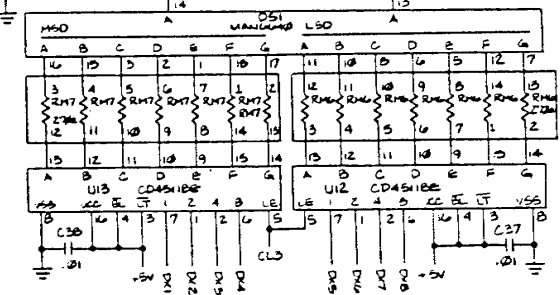 14 13
A DS1 A
MSD MAN6640 LSD
A B C D E F G A B C D E F G
16 15 3 2 1 18 17 11 10 8 6 5 12 7
3 4 5 6 7 1 2 12 11 10 9 8 14 13
RM7 RM7 RM7 RM7 RM7 RM7 RM7 RM6 RM6 RM6 RM6 RM6 RM6 RM6
270Ω
12 11 10 9 8 14 13 3 4 5 6 7 1 2
13 12 11 10 9 15 14 13 12 11 10 9 15 14
A B C D E F G A B C D E F G
U13 CD4511BE U12 CD4511BE
VSS VCC BL LT 1 2 4 8 LE LE 1 2 4 8 VCC BL LT VSS
8 16 4 3 7 1 2 6 5 5 7 1 2 6 16 4 3 8
C38 C37
.01 CL3 .01
+5V DX1 DX2 DX3 DX4 DX5 DX6 DX7 DX8 +5V